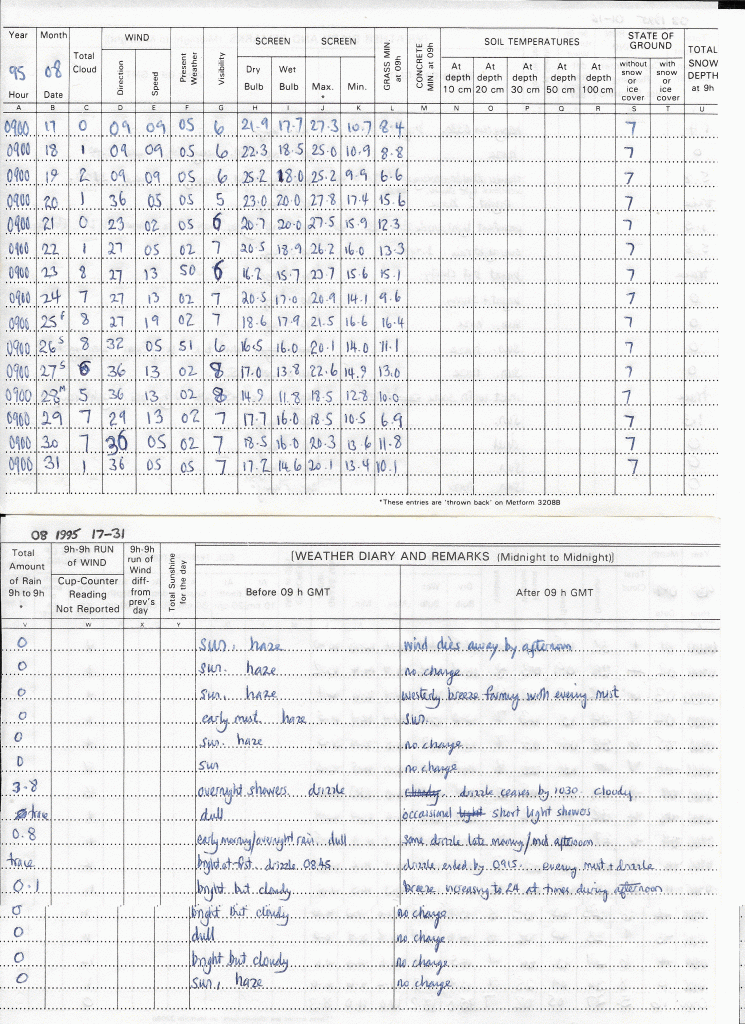 Year Month Total Cloud WIND Present Weather Visibility SCREEN SCREEN GRASS MIN. at 09h CONCRETE MIN. at 09h SOIL TEMPERATURES STATE OF GROUND TOTAL SNOW DEPTH at 9h
95 08 Direction Speed Dry Bulb Wet Bulb Max. * Min. At depth 10 cm At depth 20 cm At depth 30 cm At depth 50 cm At depth 100 cm without snow or ice cover with snow or ice cover
Hour Date
A B C D E F G H I J K L M N O P Q R S T U
0900 17 0 09 09 05 6 21.9 17.7 27.3 10.7 8.4 7
0900 18 1 09 09 05 6 22.3 18.5 25.0 10.9 8.8 7
0900 19 2 09 09 05 6 25.2 18.0 25.2 9.9 6.6 7
0900 20 1 36 05 05 5 23.0 20.0 27.8 17.4 15.6 7
0900 21 0 23 02 05 6 20.7 20.0 27.5 15.9 12.3 7
0900 22 1 27 05 02 7 20.5 18.9 26.2 16.0 13.3 7
0900 23 8 27 13 50 6 16.2 15.7 23.7 15.6 15.1 7
0900 24 7 27 13 02 7 20.5 17.0 20.9 14.1 9.6 7
0900 25 F 8 27 19 02 7 18.6 17.9 21.5 16.6 16.4 7
0900 26 S 8 32 05 51 6 16.5 16.0 20.1 14.0 11.1 7
0900 27 S 6 36 13 02 8 17.0 13.8 22.6 14.9 13.0 7
0900 28 M 5 36 13 02 8 14.9 11.8 18.5 12.8 10.0 7
0900 29 7 29 13 02 7 17.7 16.0 18.5 10.5 6.9 7
0900 30 7 36 05 02 7 18.5 16.0 20.3 13.6 11.8 7
0900 31 1 36 05 05 7 17.2 14.6 20.1 13.4 10.1 7
*These entries are 'thrown back' on Metform 3208B
08 1995 17-31
Total Amount of Rain 9h to 9h * 9h-9h RUN of WIND Cup-Counter Reading Not Reported 9h-9h run of Wind diff- from prev's day Total Sunshine for the day [WEATHER DIARY AND REMARKS (Midnight to Midnight)]
Before 09 h GMT After 09 h GMT
V W X Y
0 sun, haze wind dies away by afternoon
0 sun. haze no change
0 sun, haze westerly breeze with evening mist
0 early mist. haze sun
0 sun. haze no change
0 sun no change
3.8 overnight showers drizzle cloudy. drizzle ceases by 1030 cloudy
trace dull occasional light short light showers
0.8 early morning/overnight rain. dull some drizzle late morning/mid afternoon
trace bright at first. drizzle 0845 drizzle ended by 0915. evening mist + drizzle
0.1 bright but cloudy breeze increasing to 24 at times during afternoon
0 bright but cloudy no change
0 dull no change
0 bright but cloudy no change
0 sun, haze no change